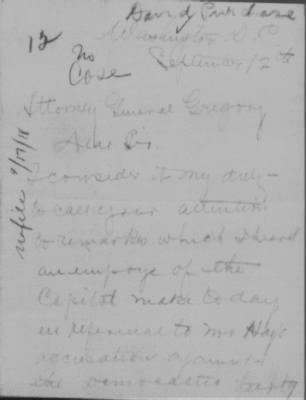 David Purchase
Washington D.C
12
September 12th
No
Case
Attorney General Gregory
Dear Sir.
I consider it my duty
to call your attention
to remarks which I heard
an employe of the
Capitol make to day
in reference to Mr Hay's
accusation against
the Democratic Party
9/17/18